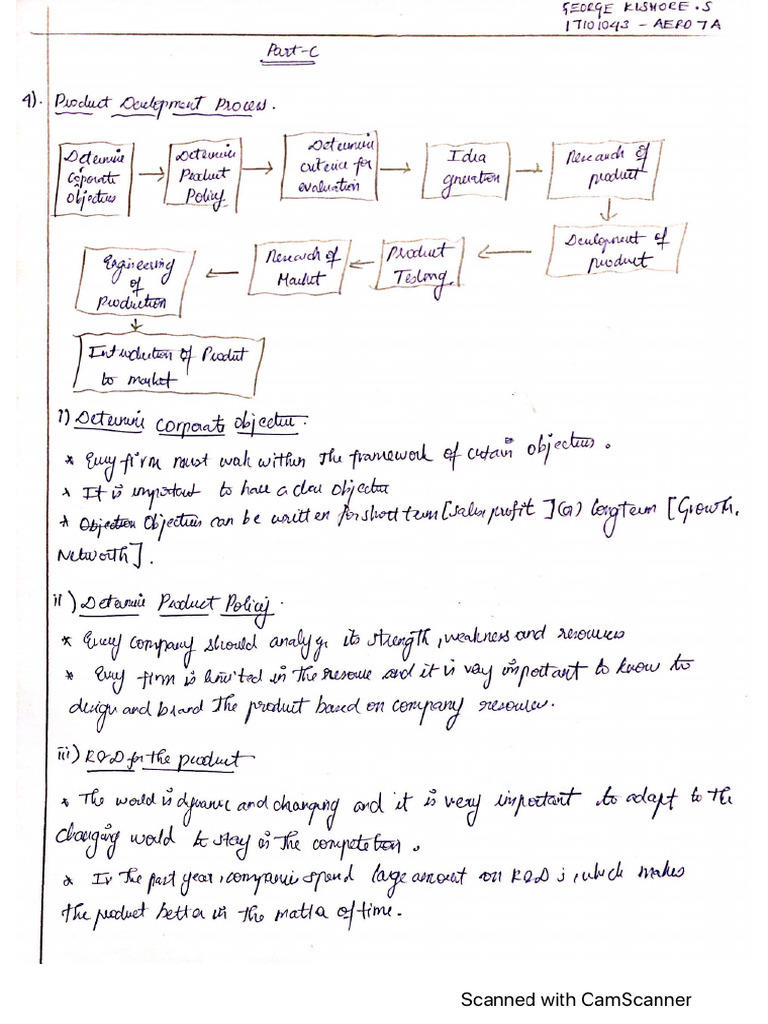 GEORGE KISHORE.S
17101043 - AERO 7A
Part-C
4). Product Development Process.
Determine Coporate Objectives
Determine Product Policy
Determine criteria for evaluation
Idea generation
Research of product
Development of product
Product Testong
Research of Market
Engineering of Production
Introduction of Product to market
1) Determine Corporate Objective.
* Every firm must walk within the framework of certain objectives.
* It is important to have a clear objective
* Objection Objectives can be written for short term [sales, profit] (or) long term [Growth,
Networth].
ii) Determine Product Policy.
* Every company should analyze its strength, weakness and resources
* Every firm is limited in the resourse and it is very important to know to
design and brand the product based on company resources.
iii) R&D for the product
* The world is dynamic and changing and it is very important to adapt to the
changing world to stay in the competetion.
* In the past year, companies spend large amount on R&D; which makes
the product better in the matter of time.
Scanned with CamScanner